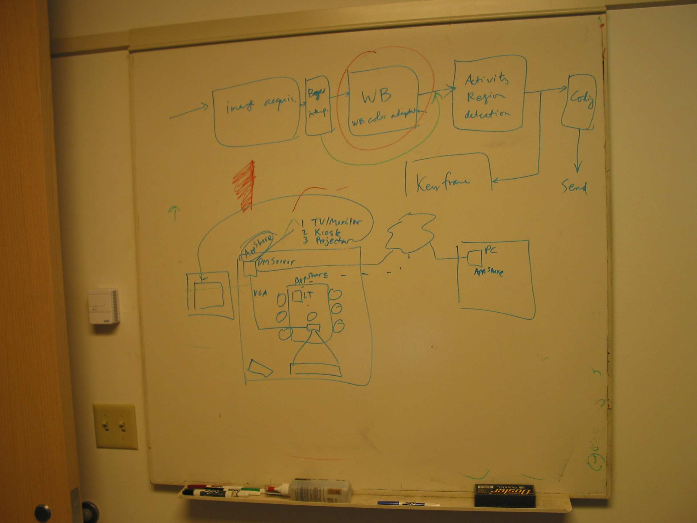 image acquis.
Bayer
WB
WB color adaptation
Activity
Region
detection
Coding
Key frame
Send
1 TV/Monitor
2 Kiosk
3 Projector
AppShare
DMServer
VGA
AppShare
LT
PC
AppShare